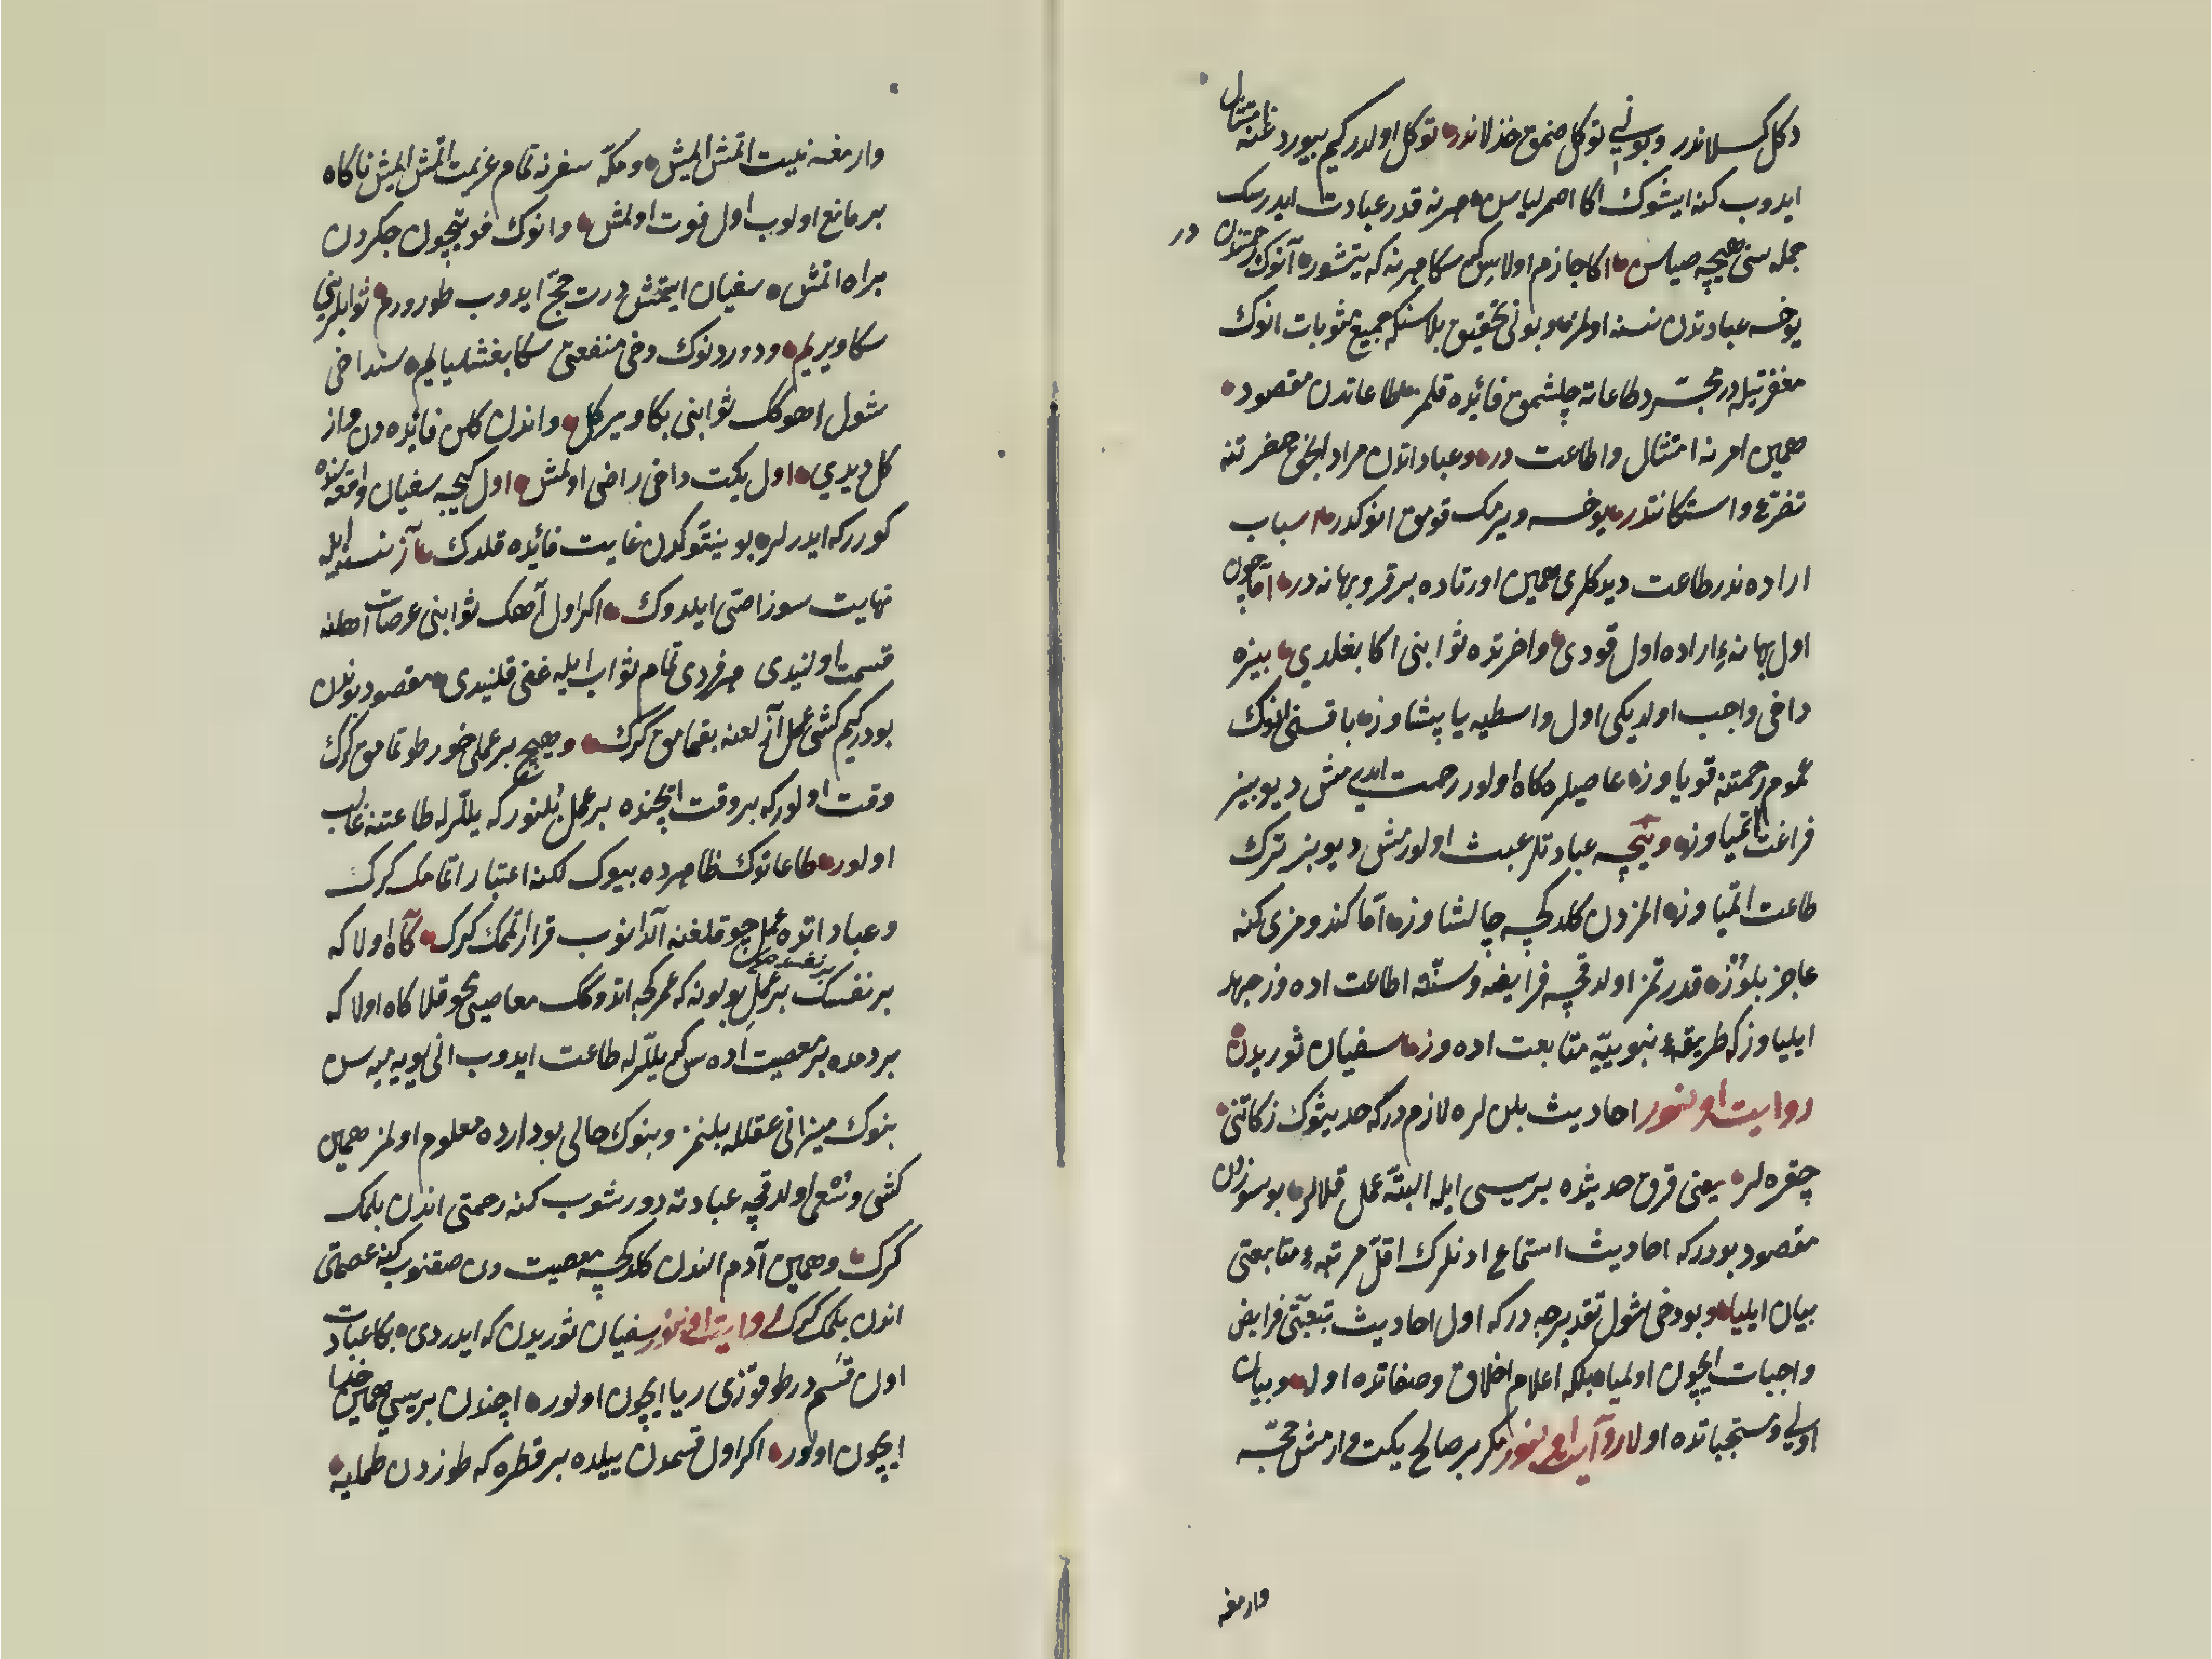 دكل كسلاندر وبونى توكل صنمق خذلاندر توكل اولدركيم بيوردغنه امتثال
ايدوب كنه ايشوك اكا اصمرلياسن هر نه قدر عبادت ايدرسك
جمله سنى هيچه صياسن اكا جازم اولاسن كه سكا هر نه كه يتشور آنوك رحمتندن در
يوخسه عبادتدن نسنه اولمز وبونى تحقيق بلاسنكه جميع مثوبات انوك
مغفرتيله در مجرّد طاعاته چلشمق فائده قلمز طاعاتدن مقصود
همين امرنه امتثال واطاعت در وعباداتدن مراد الحق حضرتنه
تضرّع واستكانتدر يوخسه ويرمك قومق انوكدر اسباب
اراده ندر طاعت ديدكلرى همين اورتاده بر قرو بهانه در امّا چون
اول بهانه ءِ اراده اول قودى واخرتده ثوابنى اكا بغلدي بيزه
داخى واجب اولديكى اول واسطيه ياپيشاوز باقسنى انوك
عموم رحمتنه قوياوز عاصيلره كاه اولور رحمت ايدرمش ديو بيز
فراغت اتمياوز ونيجه عبادتلر عبث اولورمش ديو بيز ترك
طاعت اتمياوز المزدن كلدكجه چالشاوز امّا كندومزى كنه
عاجز بلوُز قدرتمز اولدقچه فرايضه وسنّته اطاعت اده وز جهد
ايلياوز كه طريقهء نبوييّه متابعت اده وز سفيان ثوريدن
روايت اولنور احاديث بلن لره لازم در كه حديثوك زكاتنى
چقره لر يعنى قرق حديثده بريسى ايله البتّه عمل قلالر بو سوزدن
مقصود بودركه احاديث استماع ادنلرك اقلّ مرتبهء متابعتى
بيان ايليا وبو دخى شول تقديرجه در كه اول احاديث تبعيّتى فرايض
واجبات ايچون اولميا بلكه اعلام اخلاق وصفاتده اولا وبيان
اولى ومستحباتده اولا روآيت اولنور مكر بر صالح يكت وارمش حجّه
وارمغه
وارمغه نيت اتمش ايمش ومكّه سفرنه تمام عزيمت اتمش ايمش ناكاه
بر مانع اولوب اول فوت اولمش وانوك فوتيچون جكردن
بر اه اتمش سفيان ايتمش درت حجّ ايدوب طورورم ثوابلرينى
سكا ويريلم ودوردنوك دخى منفعتى سكا بغشليالم سنداخى
شول اهوكك ثوابنى بكا ويركل واندن كلن فائده دن واز
كل ديدي اول يكت داخى راضى اولمش اول كيجه سفيان واقعه سنده
كورركه ايدرلر بو بيتوكدن غايت فائده قلدك آز نسنه ايله
نهايت سوز اصّى ايلدوك اكر اول آهك ثوابنى عرصات اهلنه
قسمت اولنيدى هر فردى تمام ثواب ايله غنى قلنيدى مقصود بوندن
بودركيم كشى عمل آزلغنه بقمامق كرك وهيچ بر عملى خور طوتمامق كرك
وقت اولور كه بر وقت ايچنده بر عمل اشلنور كه يللّرله طاعتنه غالب
اولور طاعاتوك ظاهرده بيوك لكنه اعتبار اتمامك كرك
وعباداتده عمل چوقلغنه آلدانوب قرار اتمك كرك كآه اولا كه
بر نفسك بر عمل بولونه كه عمركجه اتدوكك معاصيى محو قلا كاه اولا كه
بر دمده بر معصيت اده سن كه يللّرله طاعت ايدوب انى اويه ميه سن
بنوك ميزانى عقلله بلنمز وبنوك حالى بو دارده معلوم اولمز همين
كشى وسْعى اولدقچه عبادته دورشوب كنه رحمتى اندن بلمك
كرك وهمين آدم الندن كلدكجه معصيت دن صقنوب كنه عصمتى
اندن بلمك كرك روايت اولنور سفيان ثوريدن كه ايدردى بكا عبادت
اون قسم در طوقوزى ريا ايچون اولور اچندن بريسى همين خدا
ايچون اولور اكر اول قسمدن ييلده بر قطره كه طوزدن طمليه